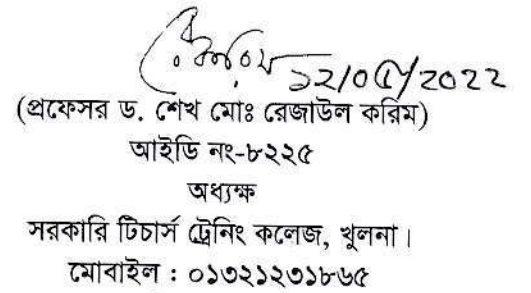 রেকরিম ১২/০৫/2022
(প্রফেসর ড. শেখ মোঃ রেজাউল করিম)
আইডি নং-৮২২৫
অধ্যক্ষ
সরকারি টিচার্স ট্রেনিং কলেজ, খুলনা।
মোবাইল : ০১৩২১২৩১৮৬৫